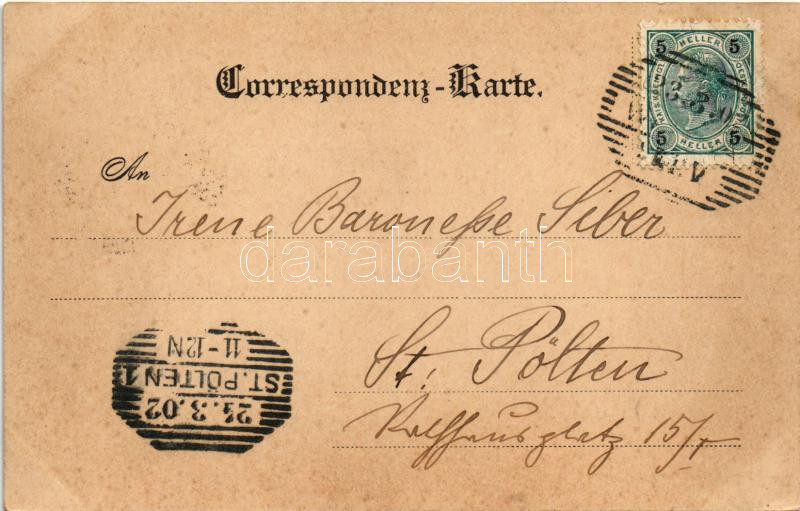 Correspondenz-Karte.
5 HELLER 5
5 HELLER 5
An
Irene Baronesse Siber
darabanth
St. Pölten
Rathausplatz 15/I
11-12N
ST. PÖLTEN 1
23.3.02